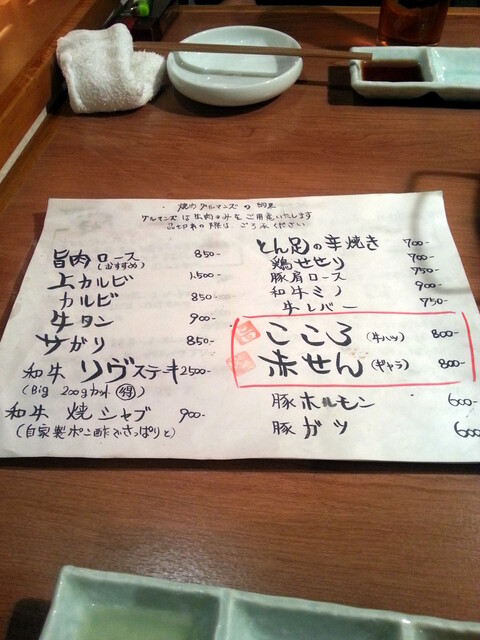 焼肉グルマンズの
グルマンズは生肉のみをご用意いたします
品切れの際はごろ承ください
旨肉ロース 850-
(おすすめ)
上カルビ 1,500-
カルビ 850-
牛タン 900-
サガリ 850-
和牛リヴステーキ 2500-
(Big 200gカット 得)
和牛焼シャブ 900-
(自家製ポン酢でさっぱりと)
とん足の辛焼き 700-
鶏せせり 700-
豚肩ロース 750-
和牛ミノ 900-
牛レバー 750-
こころ (牛ハツ) 800-
赤せん (ギャラ) 800-
豚ホルモン 600-
豚ガツ 600